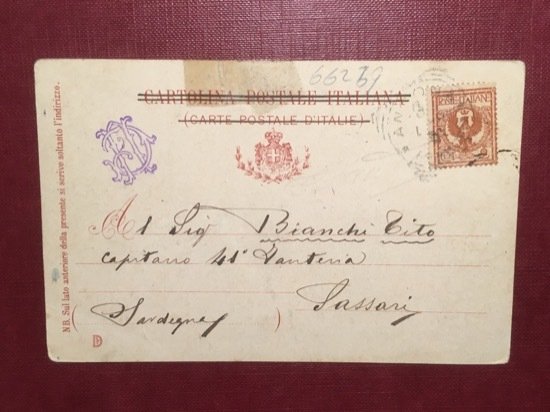 66239
CARTOLINA POSTALE ITALIANA
(CARTE POSTALE D'ITALIE)
POSTE ITALIANE
N.B. Sul lato anteriore della presente si scrive soltanto l'indirizzo.
Al Sig Bianchi Tito
capitano 41° Fanteria
Sassari
(Sardegna)